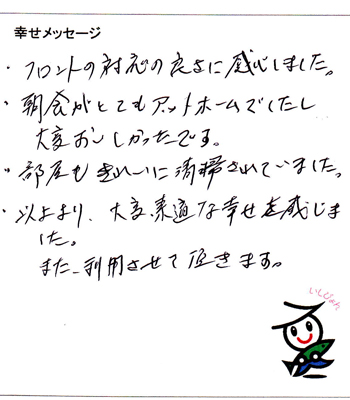 幸せメッセージ
・フロントの対応の良さに感心しました。
・朝食がとてもアットホームでしたし
大変おいしかったです。
・部屋もきれいに清掃されていました。
・以上より、大変素適な幸せを感じま
した。
また、利用させて頂きます。